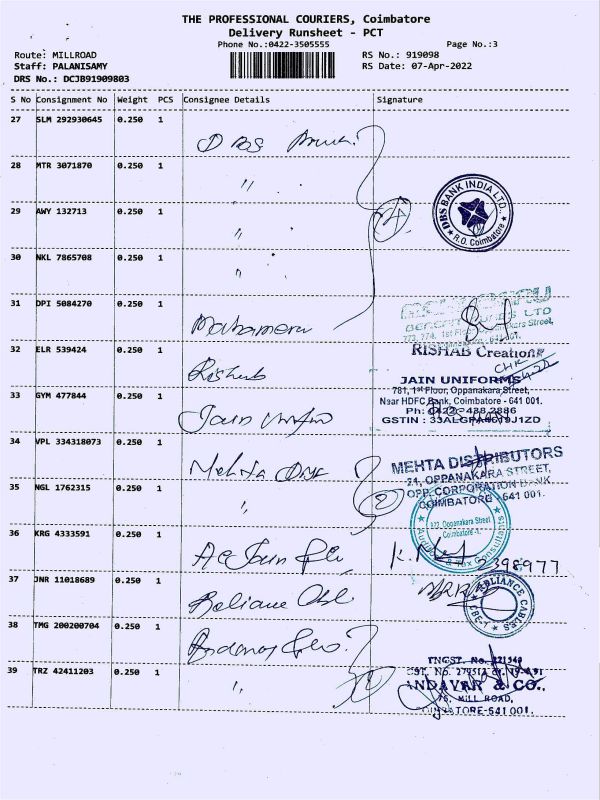 THE PROFESSIONAL COURIERS, Coimbatore
Delivery Runsheet - PCT
Phone No.:0422-3505555 Page No.:3
Route: MILLROAD RS No.: 919098
Staff: PALANISAMY RS Date: 07-Apr-2022
DRS No.: DCJB91909803
S No Consignment No Weight PCS Consignee Details Signature
27 SLM 292930645 0.250 1
DBS
28 MTR 3071870 0.250 1
"
DBS BANK INDIA LTD.,
R.O. Coimbatore
29 AWY 132713 0.250 1
"
30 NKL 7865708 0.250 1
"
31 DPI 5084270 0.250 1
Mahameru
BENEFIT FUNDS LTD
1st Floor, Oppanakara Street,
32 ELR 539424 0.250 1 RISHAB Creation
Rishab
JAIN UNIFORMS
33 GYM 477844 0.250 1 781, 1st Floor, Oppanakara Street,
Naar HDFC Bank, Coimbatore - 641 001.
Jain Ph: 0422-438 2886
GSTIN : 33ALGPA4019J1ZD
34 VPL 334318073 0.250 1
Mehta MEHTA DISTRIBUTORS
21, OPPANAKARA STREET,
35 NGL 1762315 0.250 1 OPP. CORPORATION BANK
" 2 COIMBATORE - 641 001.
Oppanakara Street
Coimbatore -1.
Auditor & Tax Consultants
36 KRG 4333591 0.250 1
Ac Jain
37 JNR 11018689 0.250 1
Reliance RELIANCE CABLES
CBE-1
38 TMG 200200704 0.250 1
TNGST. No.
39 TRZ 42411203 0.250 1
" ANDAVAR & CO.,
MILL ROAD,
COIMBATORE-641 001.